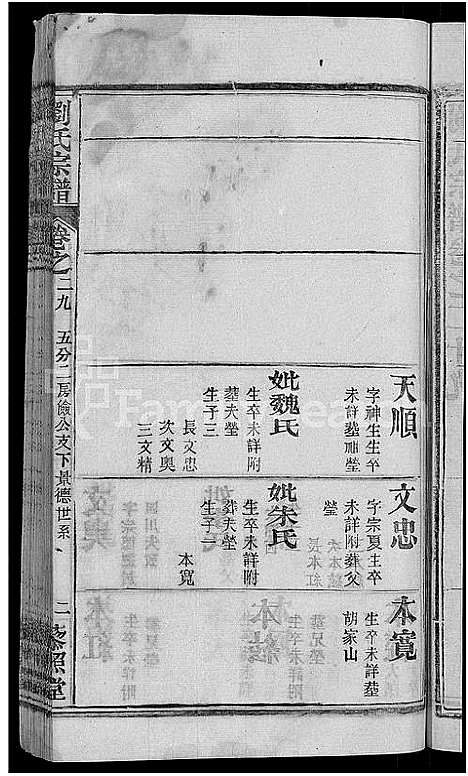 天順
字神生生卒
未詳塟祖塋
妣魏氏
生卒未詳附
塟夫塋
生子三
長文忠
次文奥
三文精
文忠
字宗夏生卒
未詳附塟父
塋
妣朱氏
生卒未詳附
塟夫塋
生子一
本寬
本寬
生卒未詳塟
胡家山
劉氏宗譜
卷之二九
五分二房儉公支下景德世系
二
藜照堂